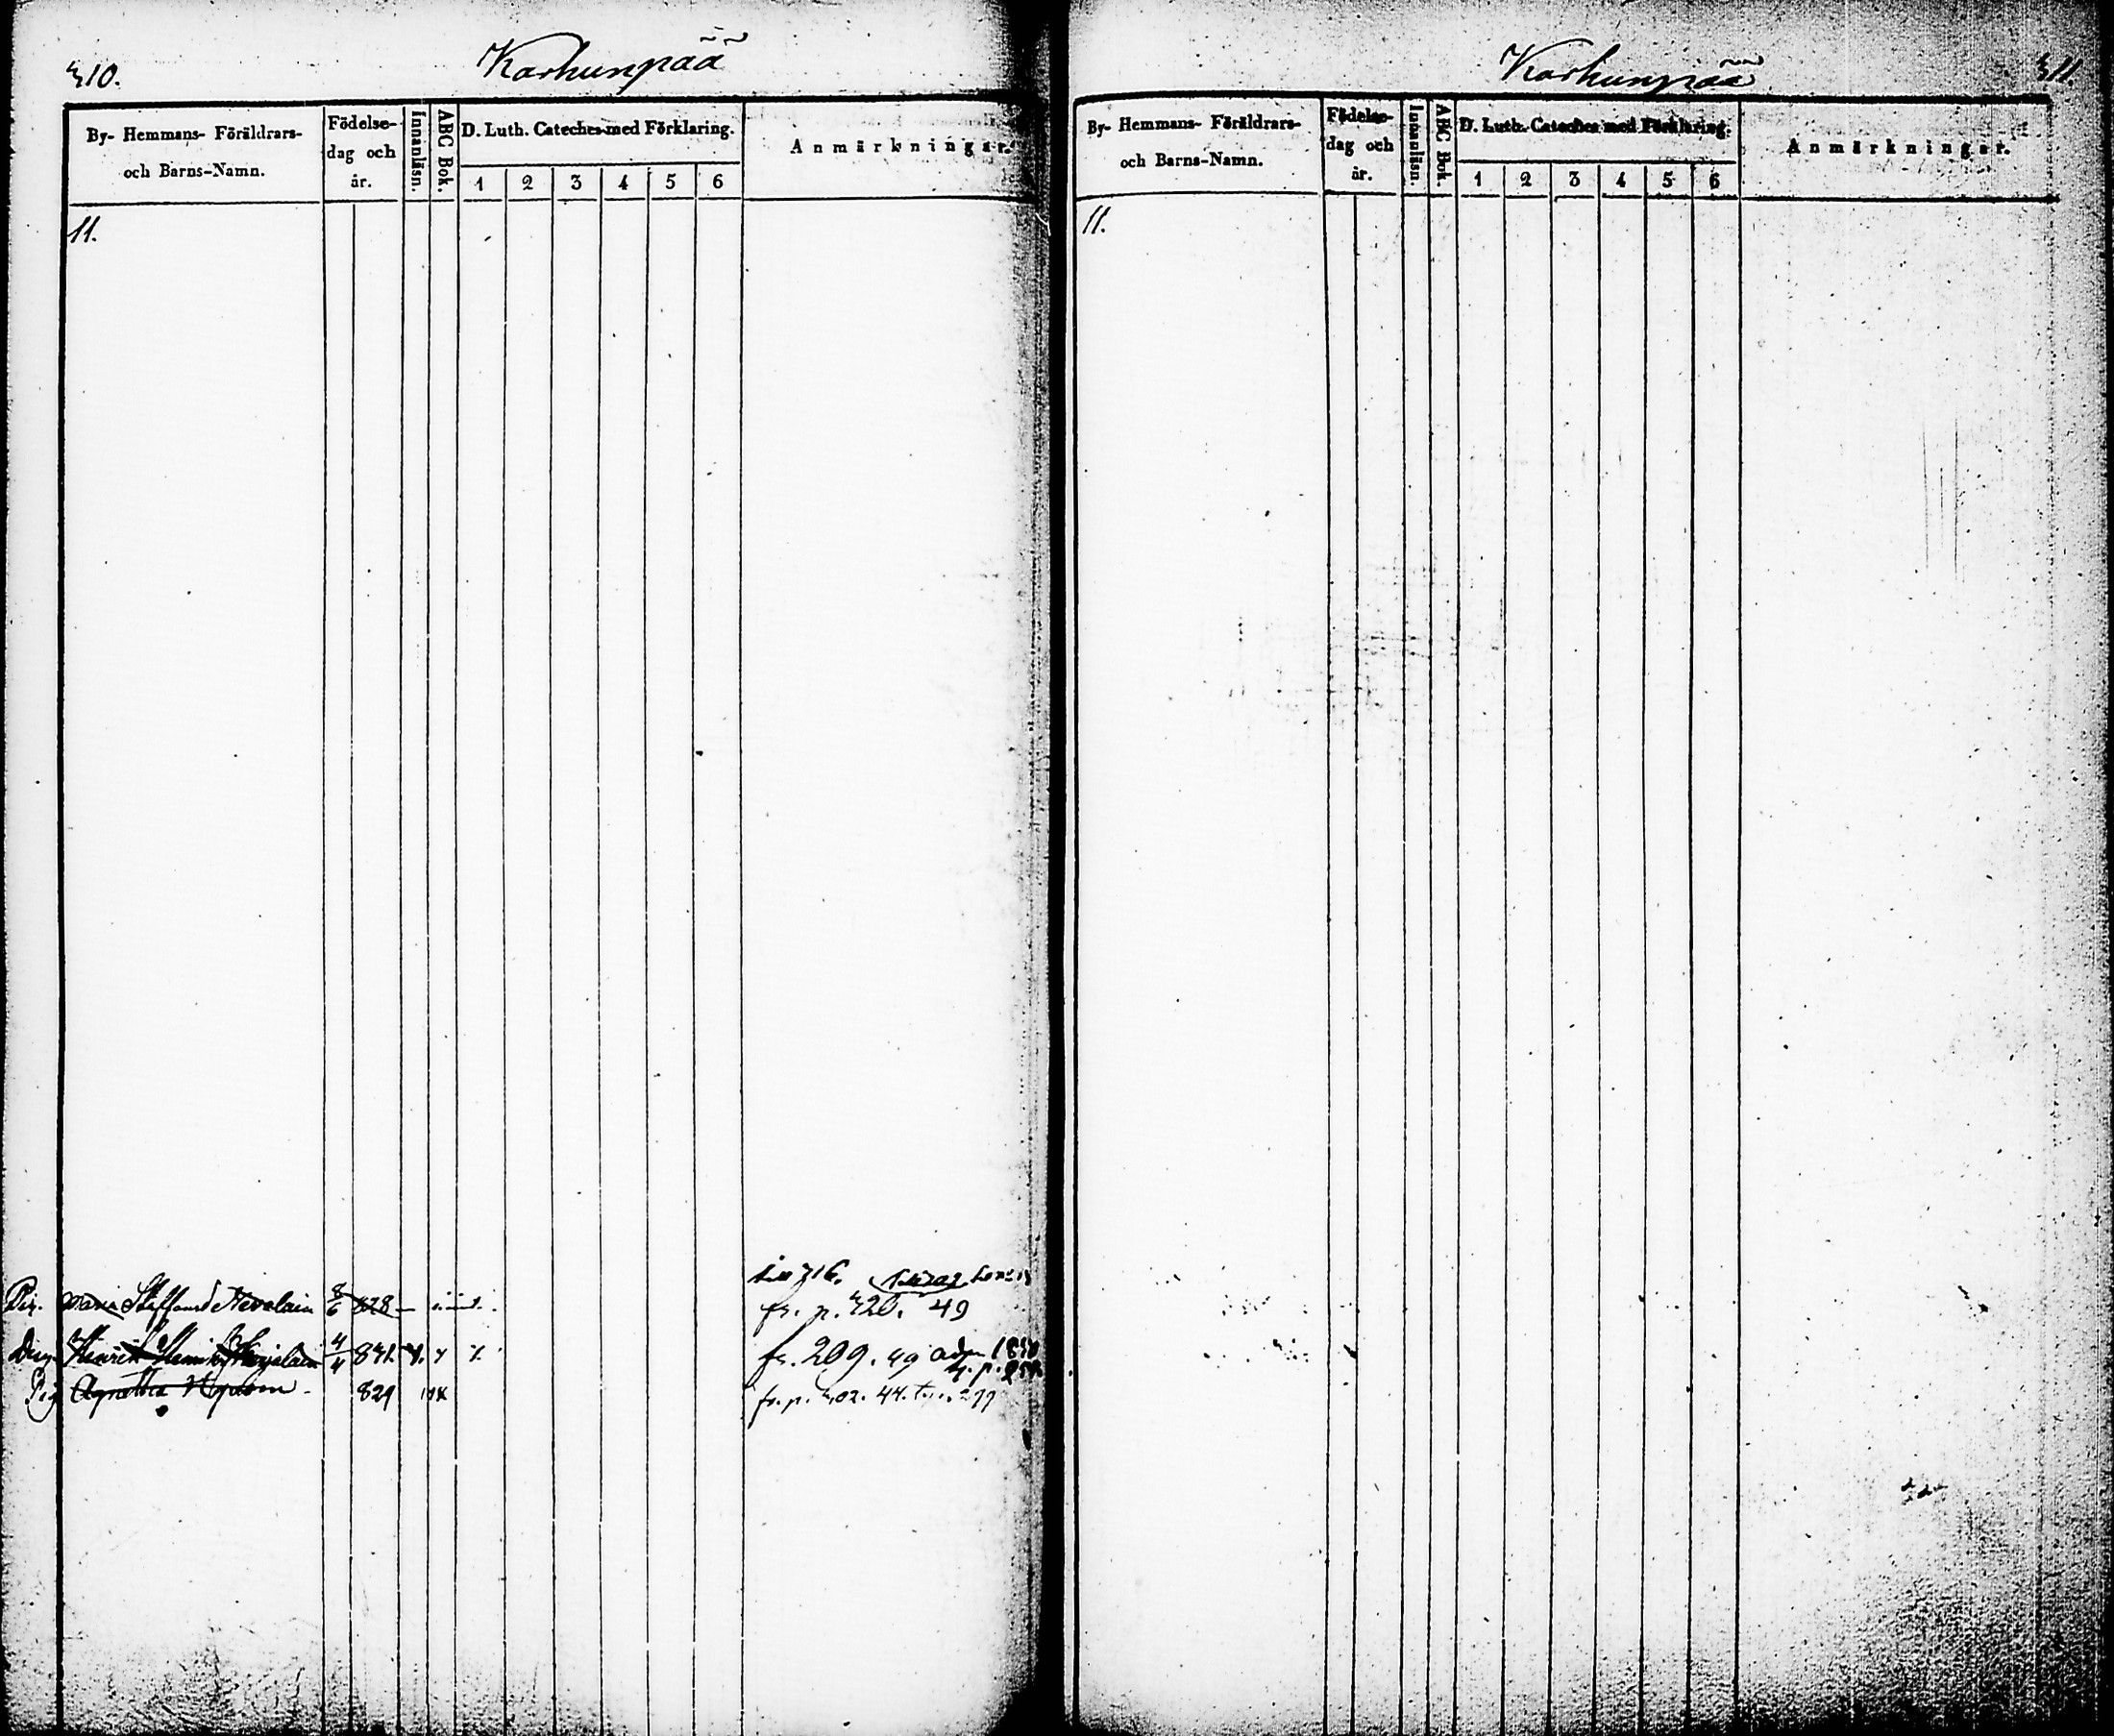 310.
Karhunpää
By- Hemmans- Föräldrars-
och Barns-Namn.
Födelse-
dag och
år.
Innanläsn.
ABC Bok.
D. Luth. Cateches med Förklaring.
1 2 3 4 5 6
Anmärkningar.
11.
till 316.
Pig. Maria Steffansd Nevalain 8/6 828 fr. p. 320. 49
Drg Henrik 4/4 831. fr. 209. 49 adm 1850
Pig Agnetha 829 fr. p. 302. 44.
Karhunpää
311
By- Hemmans- Föräldrars-
och Barns-Namn.
Födelse-
dag och
år.
Innanläsn.
ABC Bok.
D. Luth. Cateches med Förklaring.
1 2 3 4 5 6
Anmärkningar.
11.